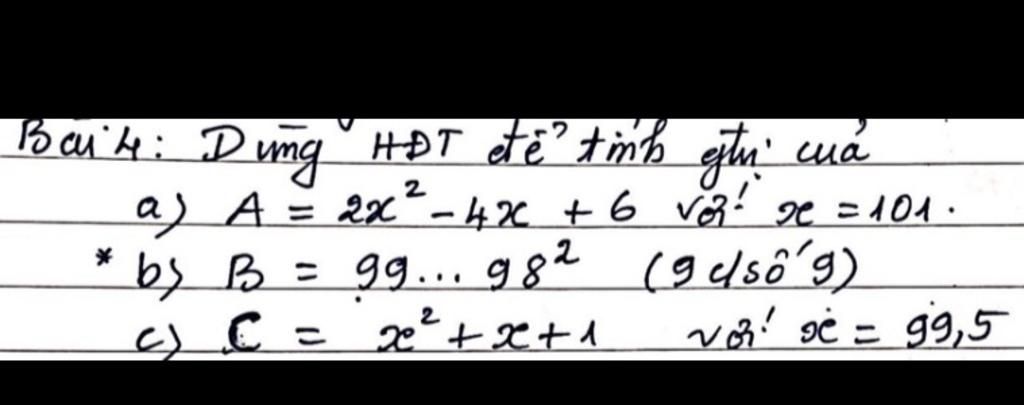 Bài 4: Dùng HĐT để tính gtrị của
a) A = 2x² - 4x + 6 với x = 101.
* b) B = 99...98² (9 c/số 9)
c) C = x² + x + 1 với x = 99,5